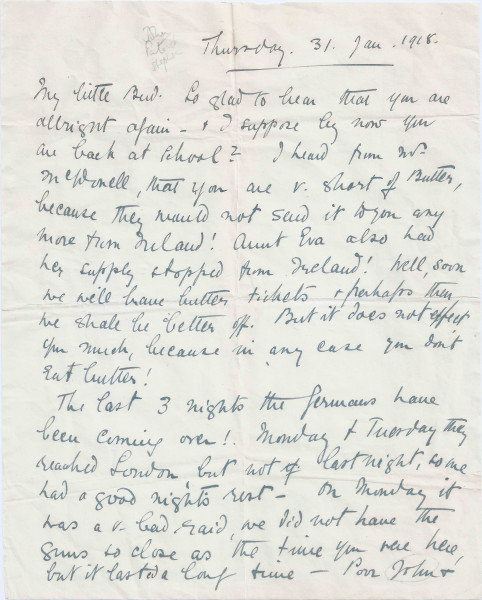 Thursday. 31. Jan. 1918.
My little Bud. So glad to hear that you are
allright again - & I suppose by now you
are back at School? I heard from Mr
McDonell, that you are v. short of Butter,
because they would not send it to you any
more from Ireland! Aunt Eva also had
her supply stopped from Ireland! Well, soon
we will have butter tickets & perhaps then
we shall be better off. But it does not effect
you much, because in any case you don't
Eat butter!
The last 3 nights the Germans have
been coming over! Monday & Tuesday they
reached London, but not last night, so we
had a good night's rest - On Monday it
was a v. bad raid, we did not have the
guns so close as the time you were here,
but it lasted a long time - Poor John &